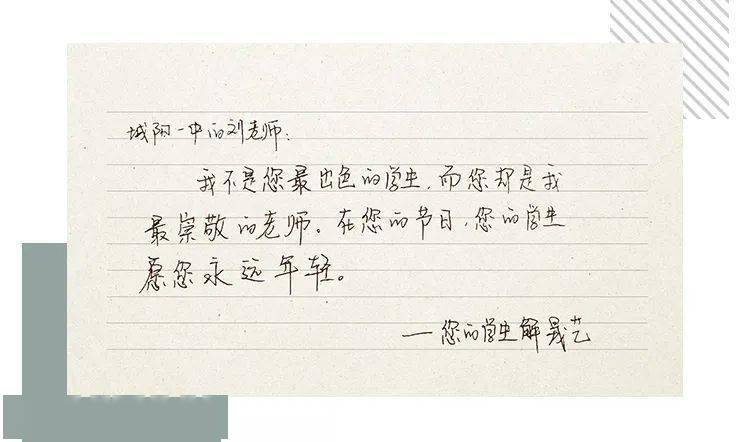 城阳一中的刘老师:
我不是您最出色的学生,而您却是我
最崇敬的老师。在您的节日,您的学生
愿您永远年轻。
——您的学生解晟艺